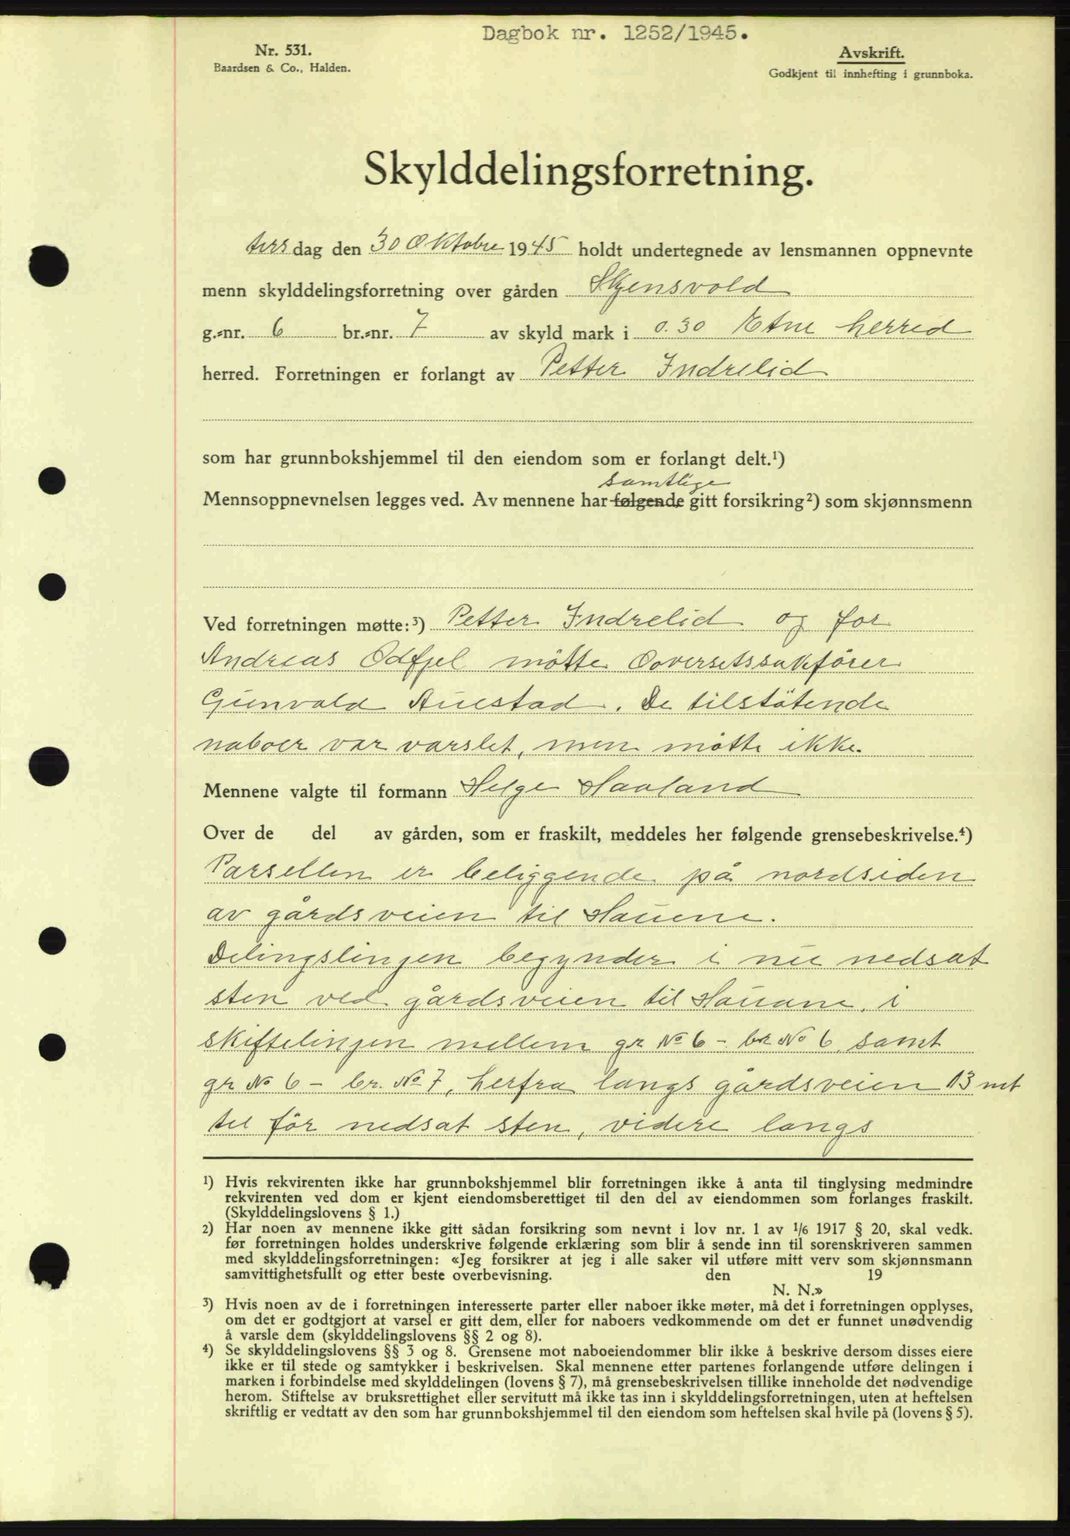 Dagbok nr. 1252/1945.
Nr. 531.
Baardsen & Co., Halden.
Avskrift.
Godkjent til innhefting i grunnboka.
Skylddelingsforretning.
tirsdag den 30 Oktobre 1945 holdt undertegnede av lensmannen oppnevnte
menn skylddelingsforretning over gården Skjensvold
g.-nr. 6 br.-nr. 7 av skyld mark i 0.30 Etne herred
herred. Forretningen er forlangt av Petter Indrelid
som har grunnbokshjemmel til den eiendom som er forlangt delt.¹)
samtlige
Mennsoppnevnelsen legges ved. Av mennene har følgende gitt forsikring²) som skjønnsmenn
Ved forretningen møtte:³) Petter Indrelid og for
Andreas Odfjel møtte Ooversetssakfører
Gunvald Auestad. De tilstøtende
naboer var varslet, men møtte ikke.
Mennene valgte til formann Helge Haaland
Over de del av gården, som er fraskilt, meddeles her følgende grensebeskrivelse.⁴)
Parsellen er beliggende på nordsiden
av gårdsveien til Hauene.
Delingslinjen begynder i nu nedsat
sten ved gårdsveien til Hauane, i
skiftelinjen mellem gr No 6 - br No 6, samt
gr No 6 - br. No 7, herfra langs gårdsveien 13 mt
til før nedsat sten, videre langs
¹) Hvis rekvirenten ikke har grunnbokshjemmel blir forretningen ikke å anta til tinglysing medmindre
rekvirenten ved dom er kjent eiendomsberettiget til den del av eiendommen som forlanges fraskilt.
(Skylddelingslovens § 1.)
²) Har noen av mennene ikke gitt sådan forsikring som nevnt i lov nr. 1 av 1/6 1917 § 20, skal vedk.
før forretningen holdes underskrive følgende erklæring som blir å sende inn til sorenskriveren sammen
med skylddelingsforretningen: «Jeg forsikrer at jeg i alle saker vil utføre mitt verv som skjønnsmann
samvittighetsfullt og etter beste overbevisning. den 19
N. N.»
³) Hvis noen av de i forretningen interesserte parter eller naboer ikke møter, må det i forretningen opplyses,
om det er godtgjort at varsel er gitt dem, eller for naboers vedkommende om det er funnet unødvendig
å varsle dem (skylddelingslovens §§ 2 og 8).
⁴) Se skylddelingslovens §§ 3 og 8. Grensene mot naboeiendommer blir ikke å beskrive dersom disses eiere
ikke er til stede og samtykker i beskrivelsen. Skal mennene etter partenes forlangende utføre delingen i
marken i forbindelse med skylddelingen (lovens § 7), må grensebeskrivelsen tillike inneholde det nødvendige
herom. Stiftelse av bruksrettighet eller servitutt må ikke tas inn i skylddelingsforretningen, uten at heftelsen
skriftlig er vedtatt av den som har grunnbokshjemmel til den eiendom som heftelsen skal hvile på (lovens § 5).